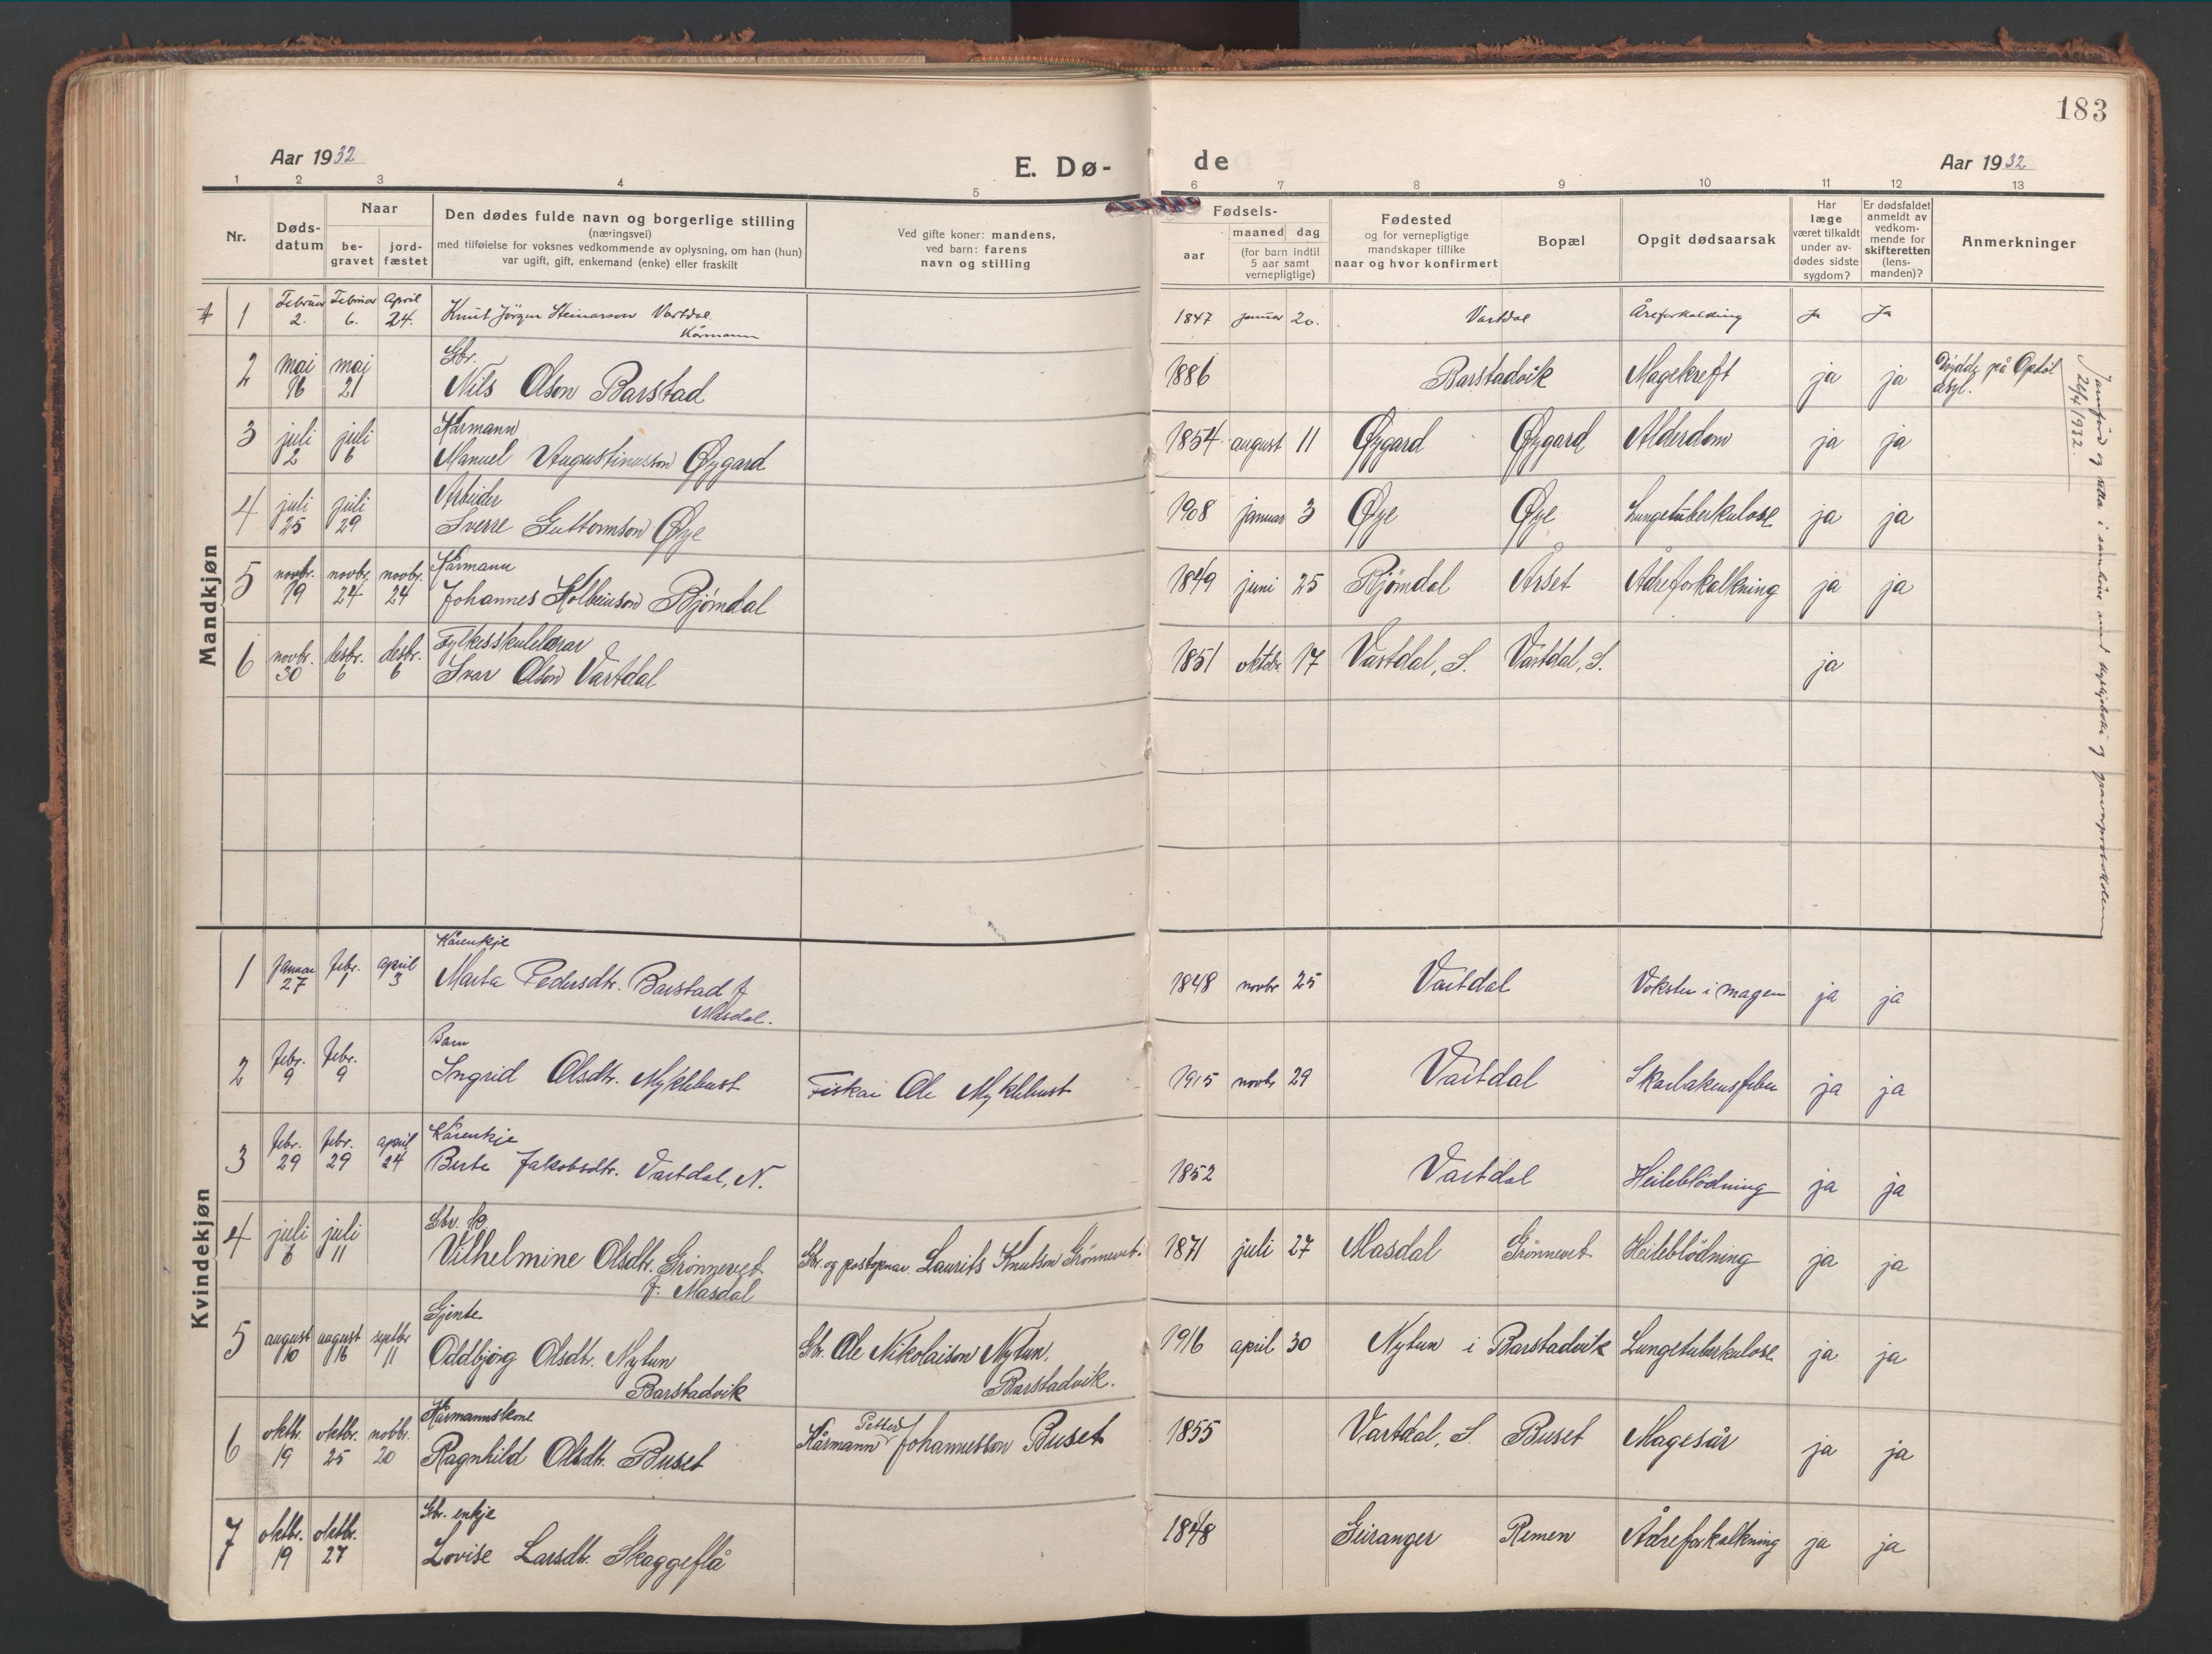 183
Aar 1932
E. Dø-
de
Aar 1932
1 2 3 4 5 6 7 8 9 10 11 12 13
Nr.
Døds-
datum
Naar
be-
gravet
jord-
fæstet
Den dødes fulde navn og borgerlige stilling
(næringsvei)
med tilføielse for voksnes vedkommende av oplysning, om han (hun)
var ugift, gift, enkemand (enke) eller fraskilt
Ved gifte koner: mandens,
ved barn: farens
navn og stilling
Fødsels-
aar
maaned dag
(for barn indtil
5 aar samt
vernepligtige)
Fødested
og for vernepligtige
mandskaper tillike
naar og hvor konfirmert
Bopæl
Opgit dødsaarsak
Har
læge
været tilkaldt
under av-
dødes sidste
sygdom?
Er dødsfaldet
anmeldt av
vedkom-
mende for
skifteretten
(lens-
manden)?
Anmerkninger
Mandkjøn
1 Februar 2. Februar 6. April 24. Knut Jörgen Steinarson Vartdal. Kårmann 1847 januar 20. Vartdal Åreforkalking Ja Ja
2 mai 16 mai 21 Gbr. Nils Olson Barstad 1886 Barstadvik Magekreft ja ja Döydde på Opdöl asyl.
3 juli 2 juli 6 Kårmann Manuel Augustinusson Øygard 1854 august 11 Øygard Øygard Alderdom ja ja
4 juli 25 juli 29 Arbeider Sverre Guttormson Øye 1908 januar 3 Øye Øye Lungetuberkulose ja ja
5 novbr. 19 novbr. 24 novbr. 24 Kårmann Johannes Kolbeinson Bjørndal 1849 juni 25 Bjørndal ÅrsetÅdreforkalkning ja ja
6 novbr. 30 desbr. 6 desbr. 6 Fylkesskulelærar Ivar Olson Vartdal 1851 oktobr. 17 Vartdal, S. Vartdal, S. ja
Jamført og retta i samhøve med kyrkjeboki og gravprotokollen
24/4 1932.
Kvindekjøn
1 januar 27 febr. 1 april 3 Kårenkje Marta Pedersdtr. Barstad f. Masdal. 1848 novbr 25 Vartdal Vokster i magen ja ja
2 febr. 9 febr. 9 Barn Ingrid Olsdtr. Myklebust Fiskar Ole Myklebust 1915 novbr 29 Vartdal Skarlakensfeber ja ja
3 febr. 29 febr. 29 april 24 Kårenkje Berte Jakobsdtr. Vartdal, N. 1852 Vartdal Heileblödning ja ja
4 juli 6 juli 11 Gbr. k. Vilhelmine Olsdtr. Grönnevet f. Masdal Gbr. og postopnar Laurits Knutson Grönnevet. 1871 juli 27 Masdal Grönnevet Heileblödning ja ja
5 august 10 august 16 septbr 11 Gjente Oddbjørg Olsdtr. Nytun Barstadvik Gbr. Ole Nikolaison Nytun, Barstadvik. 1916 april 30 Nytun i Barstadvik Lungetuberkulose ja ja
6 oktbr. 19 oktbr. 25 novbr. 20 Kårmannskone Ragnhild Olsdtr. Buset Kårmann Petter Johannesson Buset 1855 Vartdal, S. Buset Magesår ja ja
7 oktbr. 19 oktbr. 27 Gbr. enkje Lovise Larsdtr. Skaggeflå 1848 Geiranger Remen Ådreforkalkning ja ja